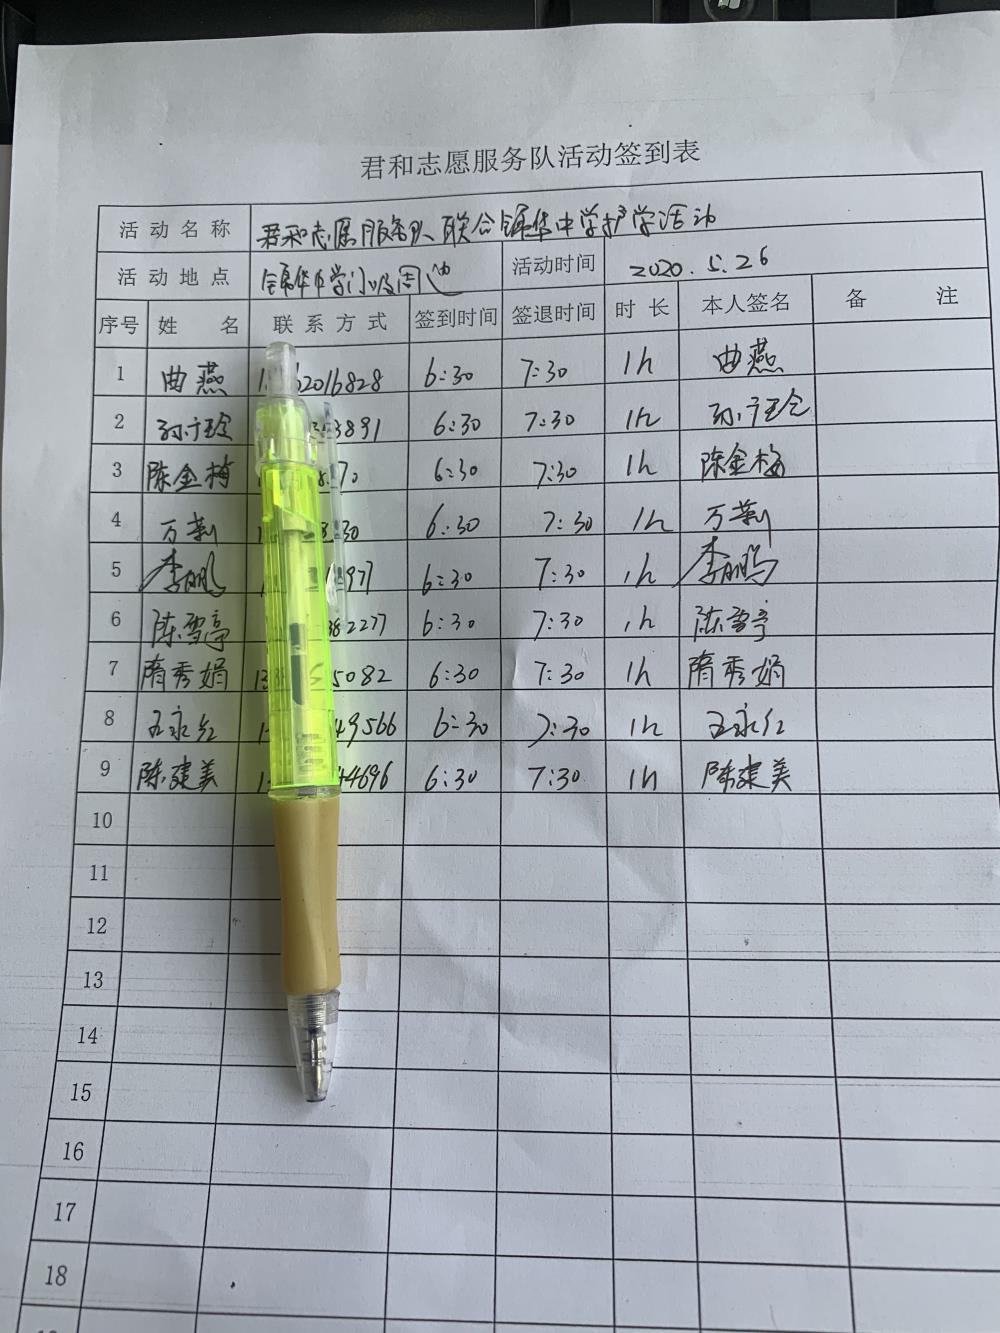 君和志愿服务队活动签到表
活动名称 君和志愿服务队联合锦华中学护学活动
活动地点 锦华中学门口及周边 活动时间 2020.5.26
序号 姓名 联系方式 签到时间 签退时间 时长 本人签名 备注
1 曲燕 2016828 6:30 7:30 1h 曲燕
2 孙广玲 3891 6:30 7:30 1h 孙广玲
3 陈金梅 70 6:30 7:30 1h 陈金梅
4 万莉 30 6:30 7:30 1h 万莉
5 李鹏 977 6:30 7:30 1h 李鹏
6 陈雪亭 82277 6:30 7:30 1h 陈雪亭
7 隋秀娟 5082 6:30 7:30 1h 隋秀娟
8 王永红 49566 6:30 7:30 1h 王永红
9 陈建美 44696 6:30 7:30 1h 陈建美
10
11
12
13
14
15
16
17
18